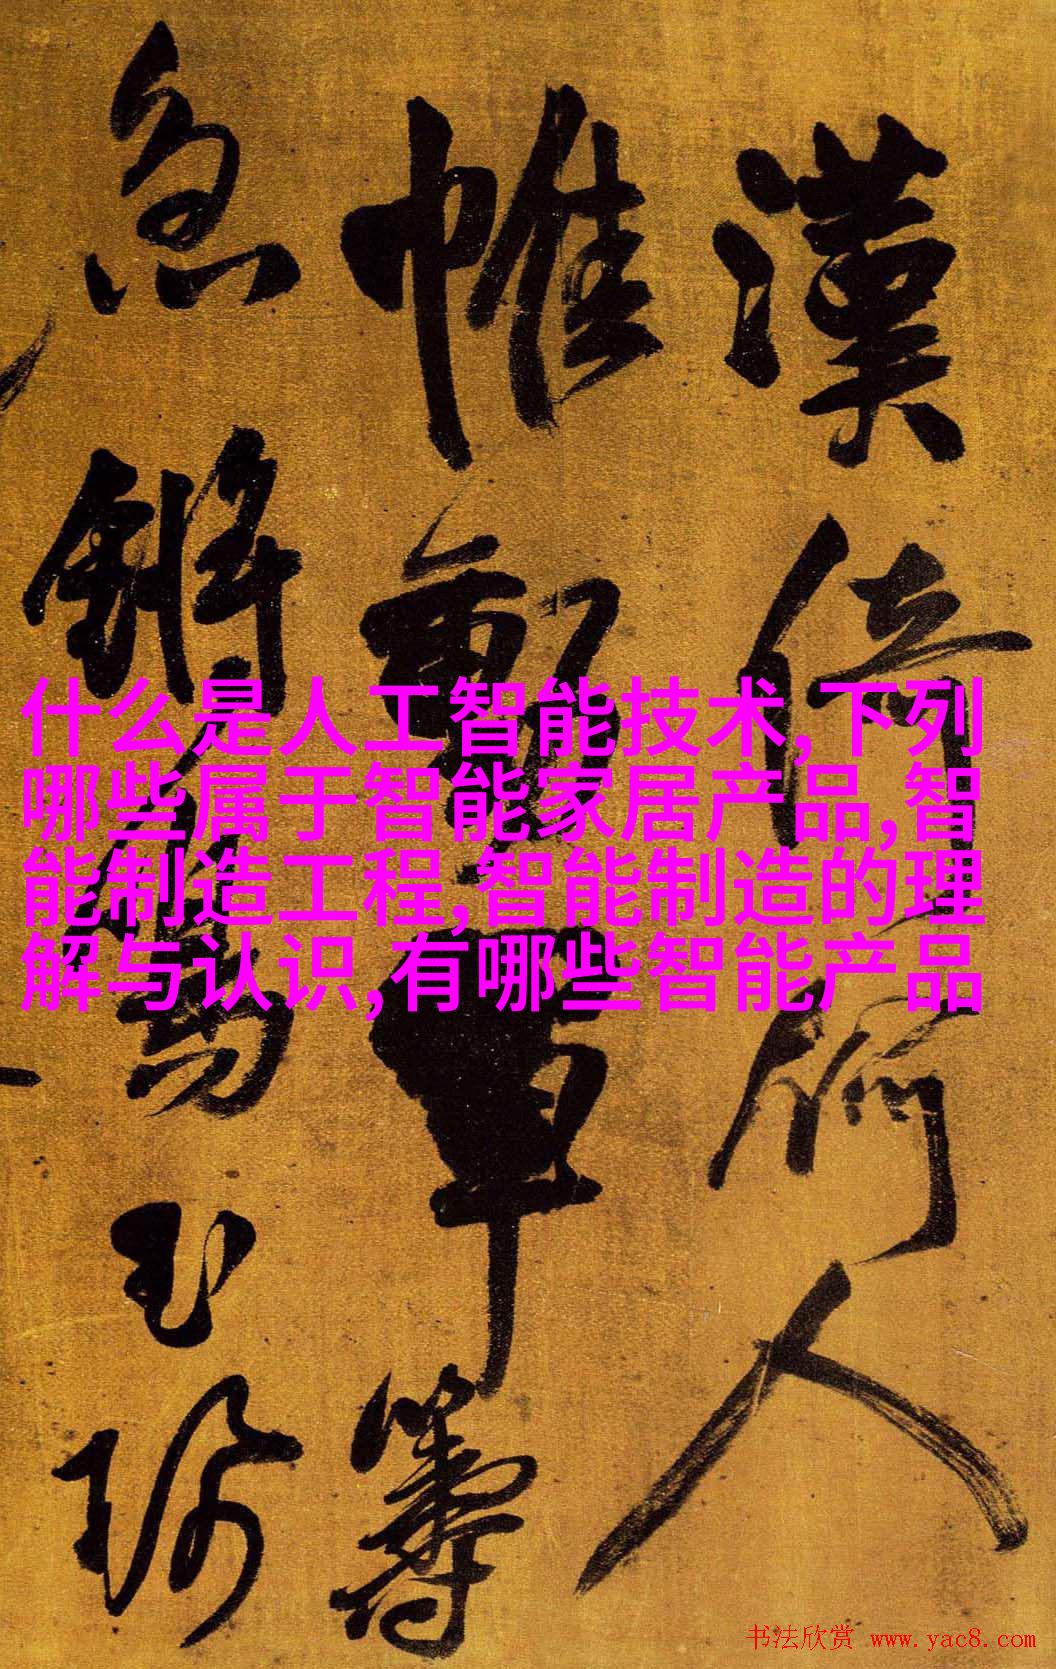 漢倚何人
帷
軍籌
急
鏘
玉
什么是人工智能技术,下列
哪些属于智能家居产品,智
能制造工程,智能制造的理
解与认识,有哪些智能产品
书法欣赏 www.yac8.com